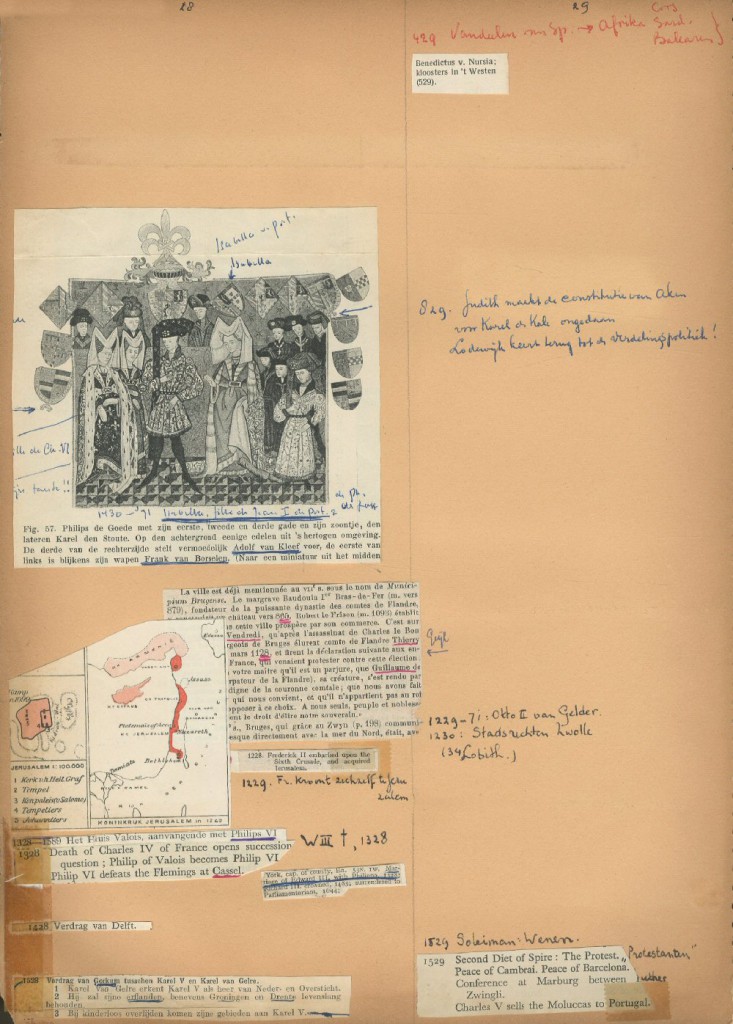 28
29
429 Vandalen van Sp. → Afrika
Cors
Sard.
Balearen
Benedictus v. Nursia;
kloosters in 't Westen
(529).
Isabella v. Port.
Isabella
829. Judith maakt de constitutie van Aken
voor Karel de Kale ongedaan
Lodewijk keert terug tot de verdelingspolitiek!
fille de Ch. VI
tante!!
1430-'71 Isabella, fille de Jean I de Port.
Fig. 57. Philips de Goede met zijn eerste, tweede en derde gade en zijn zoontje, den
lateren Karel den Stoute. Op den achtergrond eenige edelen uit 's hertogen omgeving.
De derde van de rechterzijde stelt vermoedelijk Adolf van Kleef voor, de eerste van
links is blijkens zijn wapen Frank van Borselen. (Naar een miniatuur uit het midden
La ville est déjà mentionnée au VIIe s. sous le nom de Municipium
Brugense. Le margrave Baudouin Ier Bras-de-Fer (m. vers
879), fondateur de la puissante dynastie des comtes de Flandre,
château vers 865. Robert le Frison (m. 1093) établit
cette ville prospère par son commerce. C'est sur
Vendredi, qu'après l'assassinat de Charles le Bon
geois de Bruges élurent comte de Flandre Thierry
mars 1128, et firent la déclaration suivante aux en-
France, qui venaient protester contre cette élection
votre maître qu'il est un parjure, que Guillaume de
rpateur de la Flandre), sa créature, s'est rendu par
digne de la couronne comtale; que nous avons fait
qui nous convient, et qu'il n'appartient pas au roi
opposer à ce choix. A nous seuls, peuple et nobles
ent le droit d'élire notre souverain.
s., Bruges, qui grâce au Zwyn (p. 198) communi-
esque directement avec la mer du Nord, était, avec
Nazareth
Bethlehem
JERUSALEM 1:100.000
1 Kerk v.h. Heil. Graf
2 Tempel
3 Kon. paleis Salomo
4 Tempeliers
5 Johanniters
KONINKRIJK JERUSALEM in 1229
1228. Frederick II embarked upon the
Sixth Crusade, and acquired
Jerusalem.
1229. Fr. kroont zichzelf te Jeru
zalem
1229-71: Otto II van Gelder.
1230: Stadsrechten Zwolle
(34 Lobith.)
1328-1589 Het Huis Valois, aanvangende met Philips VI
1328 Death of Charles IV of France opens succession
question; Philip of Valois becomes Philip VI
Philip VI defeats the Flemings at Cassel.
W III †, 1328
1428 Verdrag van Delft.
1529 Soleiman: Wenen.
1529 Second Diet of Spire: The Protest. „Protestanten"
Peace of Cambrai. Peace of Barcelona.
Conference at Marburg between Luther
Zwingli.
Charles V sells the Moluccas to Portugal.
1528 Verdrag van Gorkum tusschen Karel V en Karel van Gelre.
1 Karel van Gelre erkent Karel V als heer van Neder- en Oversticht.
2 Hij zal zijne erflanden, benevens Groningen en Drente levenslang
behouden.
3 Bij kinderloos overlijden komen zijne gebieden aan Karel V.